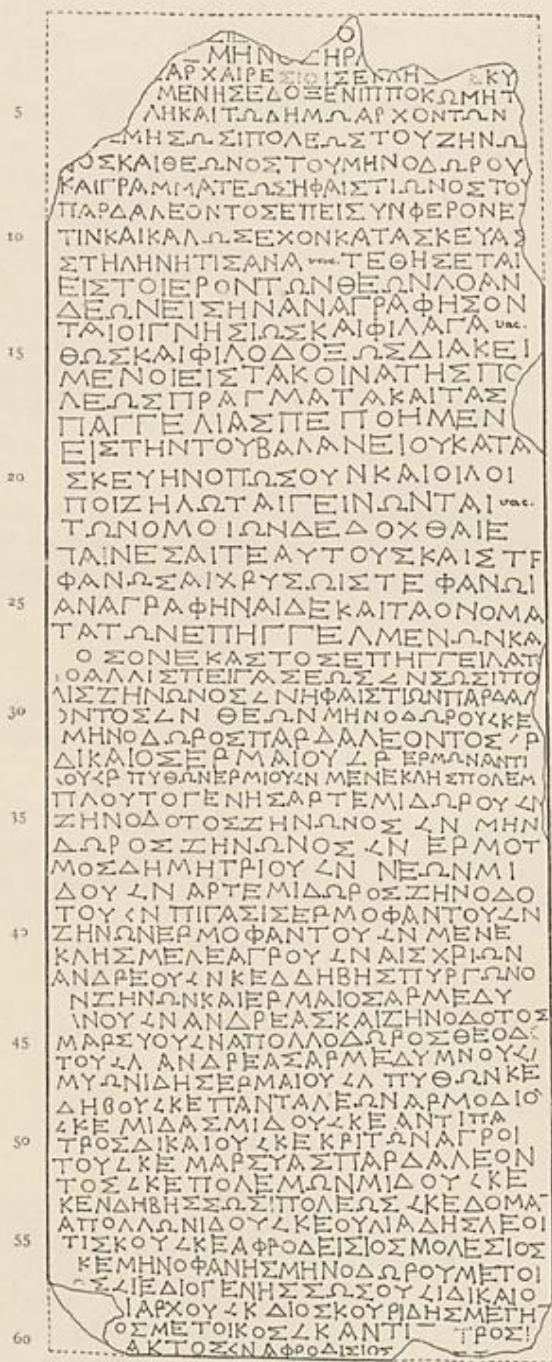 ΜΗΝΟ ΗΡ
ΑΡΧΑΙΡΕΣΙΟΙΣΕΚΛΗΣ ΣΚΥ
5 ΜΕΝΗΣΕΔΟΞΕΝΙΠΠΟΚΩΜΗΤ
ΛΗΚΑΙΤΩΔΗΜΩΑΡΧΟΝΤΩΝ
ΜΗΣΩΣΙΠΟΛΕΩΣΤΟΥΖΗΝΩ
ΟΣΚΑΙΘΕΩΝΟΣΤΟΥΜΗΝΟΔΩΡΟΥ
ΚΑΙΓΡΑΜΜΑΤΕΩΣΗΦΑΙΣΤΙΩΝΟΣΤΟΥ
ΠΑΡΔΑΛΕΟΝΤΟΣΕΠΕΙΣΥΝΦΕΡΟΝΕ
10 ΤΙΝΚΑΙΚΑΛΩΣΕΧΟΝΚΑΤΑΣΚΕΥΑΣ
ΣΤΗΛΗΝΗΤΙΣΑΝΑ vac. ΤΕΘΗΣΕΤΑΙ
ΕΙΣΤΟΙΕΡΟΝΤΩΝΘΕΩΝΛΟΑΝ
ΔΕΩΝΕΙΣΗΝΑΝΑΓΡΑΦΗΣΟΝ
ΤΑΙΟΙΓΝΗΣΙΩΣΚΑΙΦΙΛΑΓΑ vac.
15 ΘΩΣΚΑΙΦΙΛΟΔΟΞΩΣΔΙΑΚΕΙ
ΜΕΝΟΙΕΙΣΤΑΚΟΙΝΑΤΗΣΠΟ
ΛΕΩΣΠΡΑΓΜΑΤΑΚΑΙΤΑΣ
ΠΑΓΓΕΛΙΑΣΠΕΠΟΗΜΕΝ
ΕΙΣΤΗΝΤΟΥΒΑΛΑΝΕΙΟΥΚΑΤΑ
20 ΣΚΕΥΗΝΟΠΩΣΟΥΝΚΑΙΟΙΛΟΙ
ΠΟΙΖΗΛΩΤΑΙΓΕΙΝΩΝΤΑΙ vac.
ΤΩΝΟΜΟΙΩΝΔΕΔΟΧΘΑΙΕ
ΠΑΙΝΕΣΑΙΤΕΑΥΤΟΥΣΚΑΙΣΤΕ
ΦΑΝΩΣΑΙΧΡΥΣΩΙΣΤΕΦΑΝΩΙ
25 ΑΝΑΓΡΑΦΗΝΑΙΔΕΚΑΙΤΑΟΝΟΜΑ
ΤΑΤΩΝΕΠΗΓΓΕΛΜΕΝΩΝΚΑ
ΟΣΟΝΕΚΑΣΤΟΣΕΠΗΓΓΕΙΛΑΤ
ΟΑΛΛΙΣΠΕΙΓΑΣΕΩΣ𐅊ΝΣΩΣΙΠΟ
ΛΙΣΖΗΝΩΝΟΣ𐅊ΝΗΦΑΙΣΤΙΩΝΠΑΡΔΑΛ
30 ΟΝΤΟΣ𐅊Ν ΘΕΩΝΜΗΝΟΔΩΡΟΥ𐅊ΚΕ
ΜΗΝΟΔΩΡΟΣΠΑΡΔΑΛΕΟΝΤΟΣ𐅊Ρ
ΔΙΚΑΙΟΣΕΡΜΑΙΟΥ𐅊Ρ ΕΡΜΩΝΑΝΤΙ
ΟΥ𐅊Ρ ΠΥΘΩΝΕΡΜΙΟΥ𐅊Ν ΜΕΝΕΚΛΗΣΠΟΛΕΜ
ΠΛΟΥΤΟΓΕΝΗΣΑΡΤΕΜΙΔΩΡΟΥ𐅊Ν
35 ΖΗΝΟΔΟΤΟΣΖΗΝΩΝΟΣ 𐅊Ν ΜΗΝ
ΔΩΡΟΣΖΗΝΩΝΟΣ 𐅊Ν ΕΡΜΟΤ
ΜΟΣΔΗΜΗΤΡΙΟΥ𐅊Ν ΝΕΩΝΜΙ
ΔΟΥ𐅊Ν ΑΡΤΕΜΙΔΩΡΟΣΖΗΝΟΔΟ
ΤΟΥ𐅊Ν ΠΙΓΑΣΙΣΕΡΜΟΦΑΝΤΟΥ𐅊Ν
40 ΖΗΝΩΝΕΡΜΟΦΑΝΤΟΥ𐅊Ν ΜΕΝΕ
ΚΛΗΣΜΕΛΕΑΓΡΟΥ𐅊ΝΑΙΣΧΡΙΩΝ
ΑΝΔΡΕΟΥ𐅊ΝΚΕΔΔΗΒΗΣΠΥΡΓΩΝΟ
ΝΖΗΝΩΝΚΑΙΕΡΜΑΙΟΣΑΡΜΕΔΥ
ΝΟΥ𐅊ΝΑΝΔΡΕΑΣΚΑΙΖΗΝΟΔΟΤΟΣ
45 ΜΑΡΣΥΟΥ𐅊ΝΑΠΟΛΛΟΔΩΡΟΣΘΕΟΔ
ΤΟΥ𐅊Λ ΑΝΔΡΕΑΣΑΡΜΕΔΥΜΝΟΥ𐅊
ΜΥΩΝΙΔΗΣΕΡΜΑΙΟΥ𐅊Λ ΠΥΘΩΝΚΕ
ΔΗΒΟΥ𐅊ΚΕΠΑΝΤΑΛΕΩΝΑΡΜΟΔΙΟ
𐅊ΚΕ ΜΙΔΑΣΜΙΔΟΥ𐅊ΚΕ ΑΝΤΙΠΑ
50 ΤΡΟΣΔΙΚΑΙΟΥ𐅊ΚΕ ΚΡΙΤΩΝΑΓΡΟΙ
ΤΟΥ𐅊ΚΕ ΜΑΡΣΥΑΣΠΑΡΔΑΛΕΟΝ
ΤΟΣ𐅊ΚΕΠΟΛΕΜΩΝΜΙΔΟΥ𐅊ΚΕ
ΚΕΝΔΗΒΗΣΣΩΣΙΠΟΛΕΩΣ𐅊ΚΕΔΟΜΑ
ΑΠΟΛΛΩΝΙΔΟΥ𐅊ΚΕΟΥΛΙΑΔΗΣΛΕΟΙ
55 ΤΙΣΚΟΥ𐅊ΚΕΑΦΡΟΔΕΙΣΙΟΣΜΟΛΕΣΙΟΣ
ΚΕΜΗΝΟΦΑΝΗΣΜΗΝΟΔΩΡΟΥΜΕΤΟΙ
Σ𐅊ΙΕΔΙΟΓΕΝΗΣΣΩΣΟΥ𐅊ΙΔΙΚΑΙΟ
ΙΑΡΧΟΥ𐅊Κ ΔΙΟΣΚΟΥΡΙΔΗΣΜΕΤΗ
ΟΣΜΕΤΟΙΚΟΣ𐅊ΚΑΝΤΙ ΤΡΟΣΙ
60 ΑΚΤΟΣ𐅊ΝΑΦΡΟΔΙΣΙΟΣ